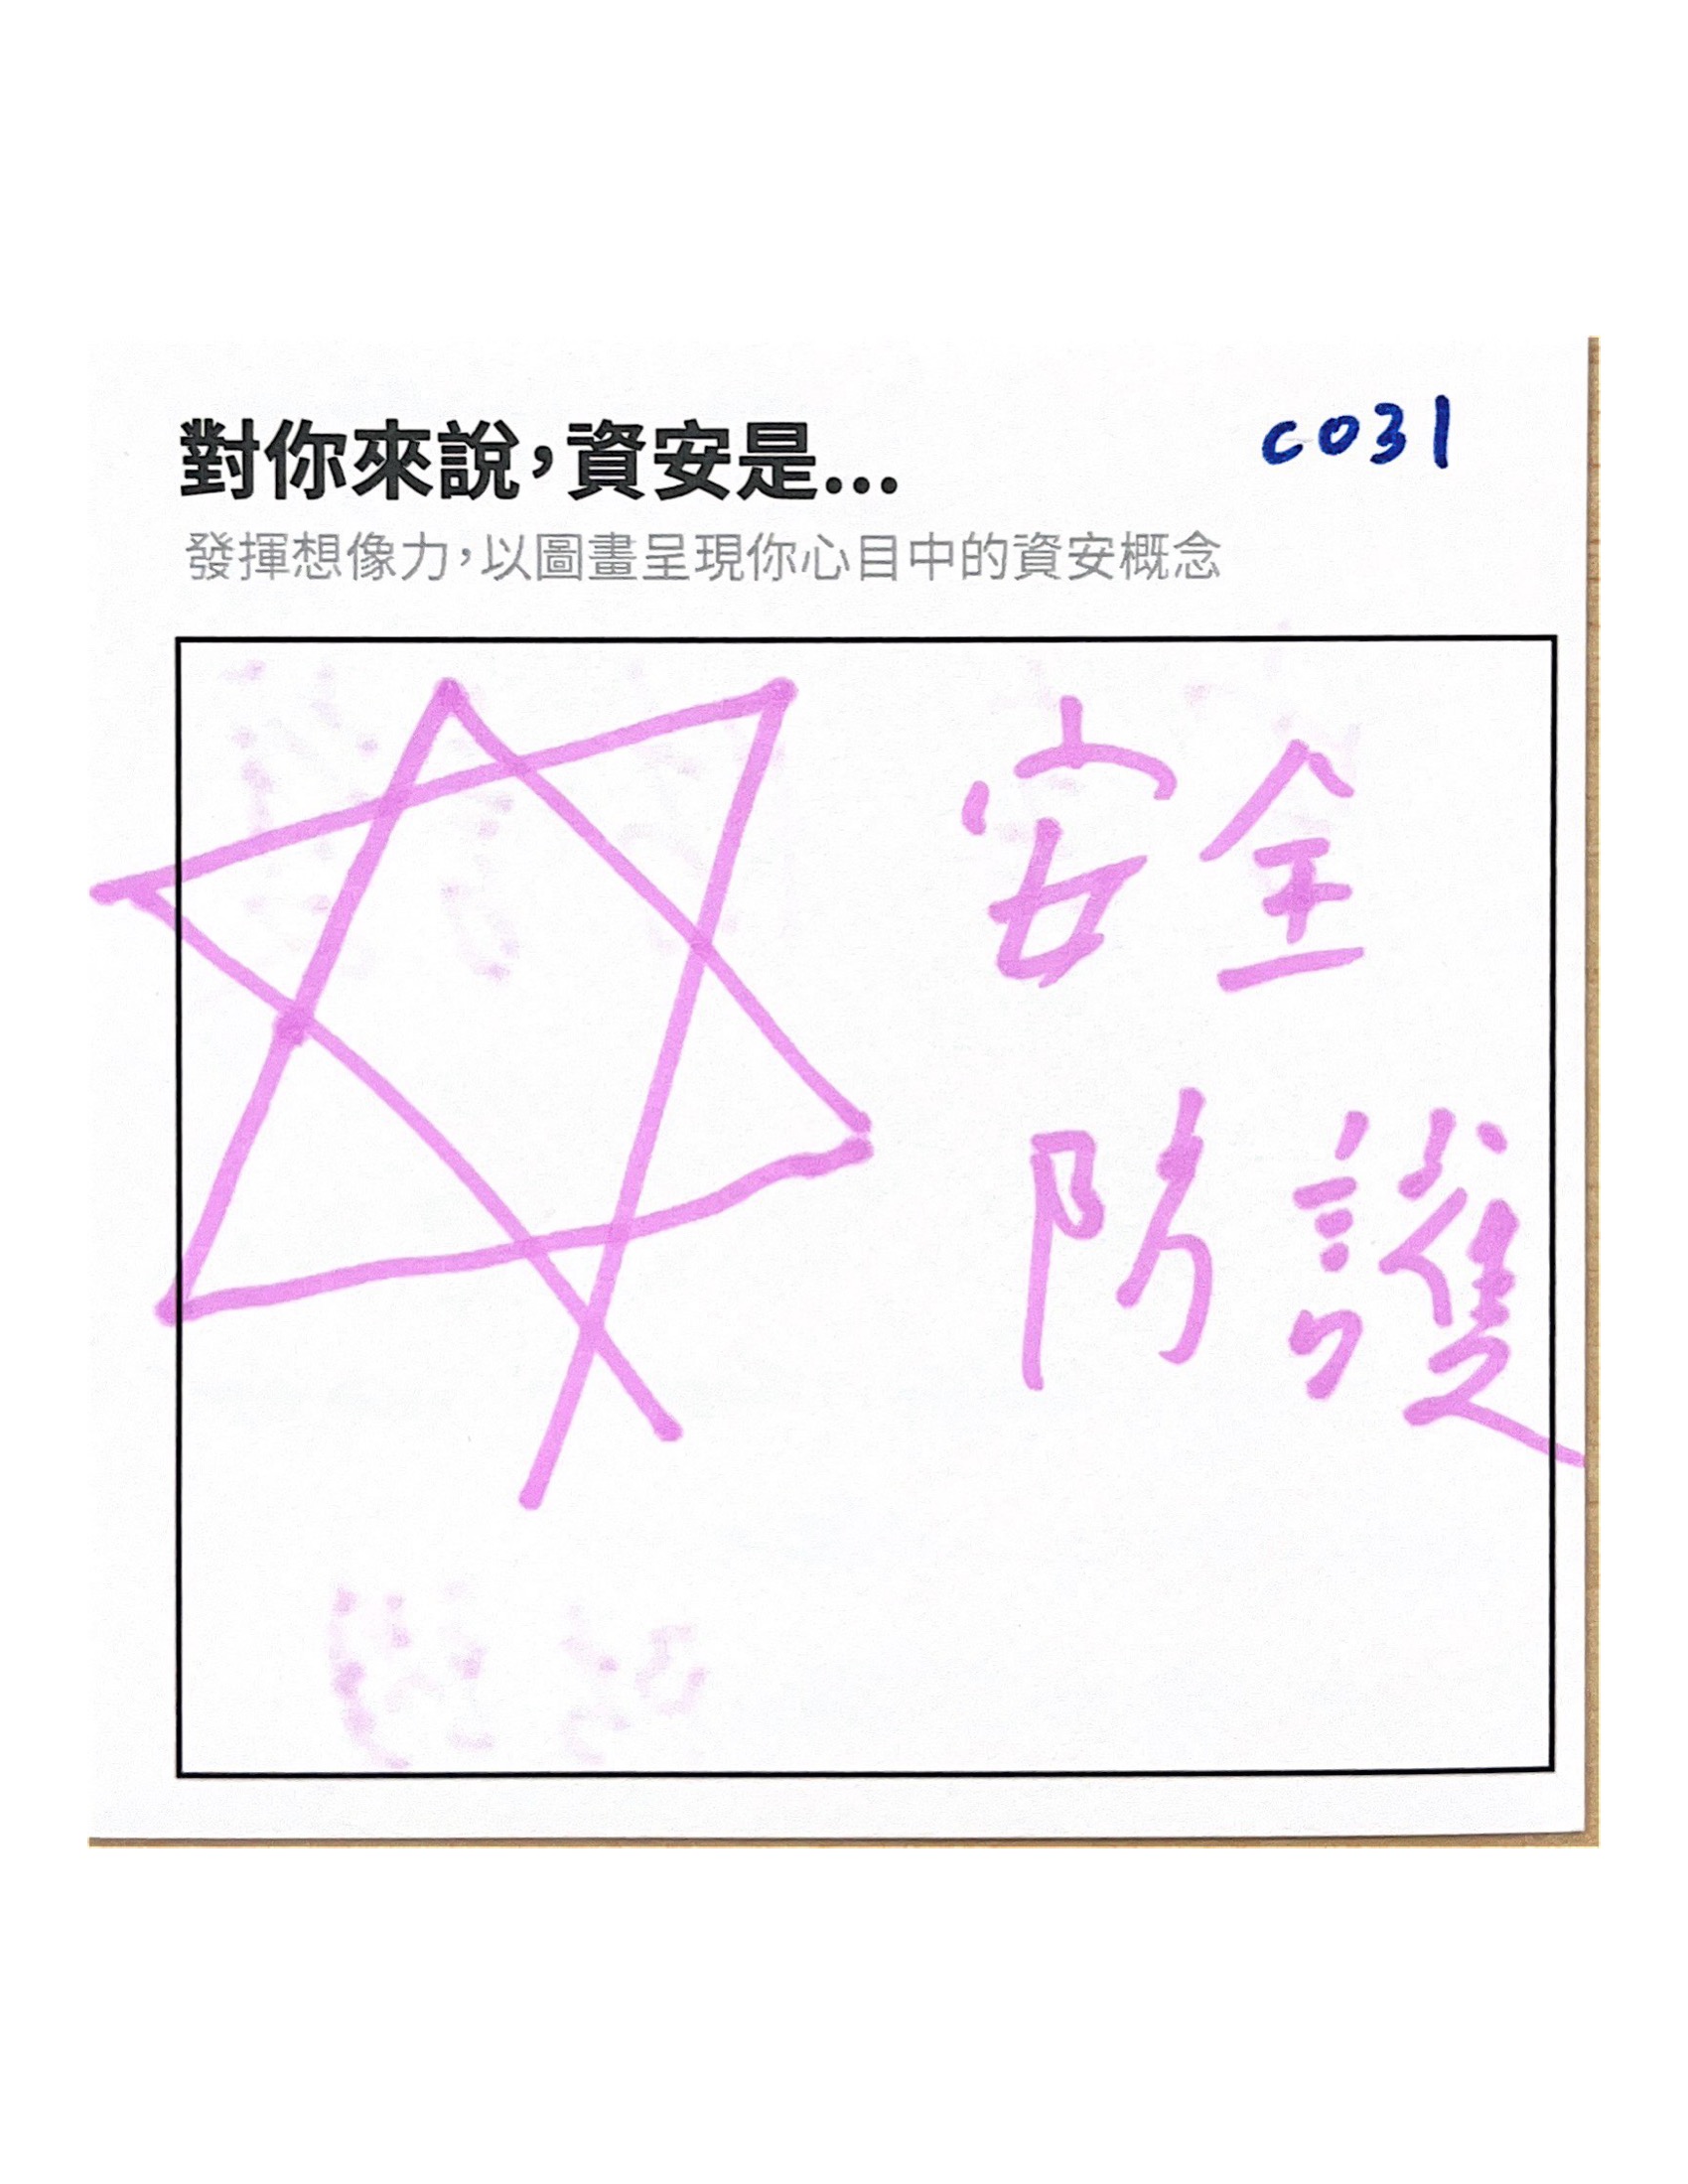 對你來說，資安是...
C031
發揮想像力，以圖畫呈現你心目中的資安概念
安全
防護